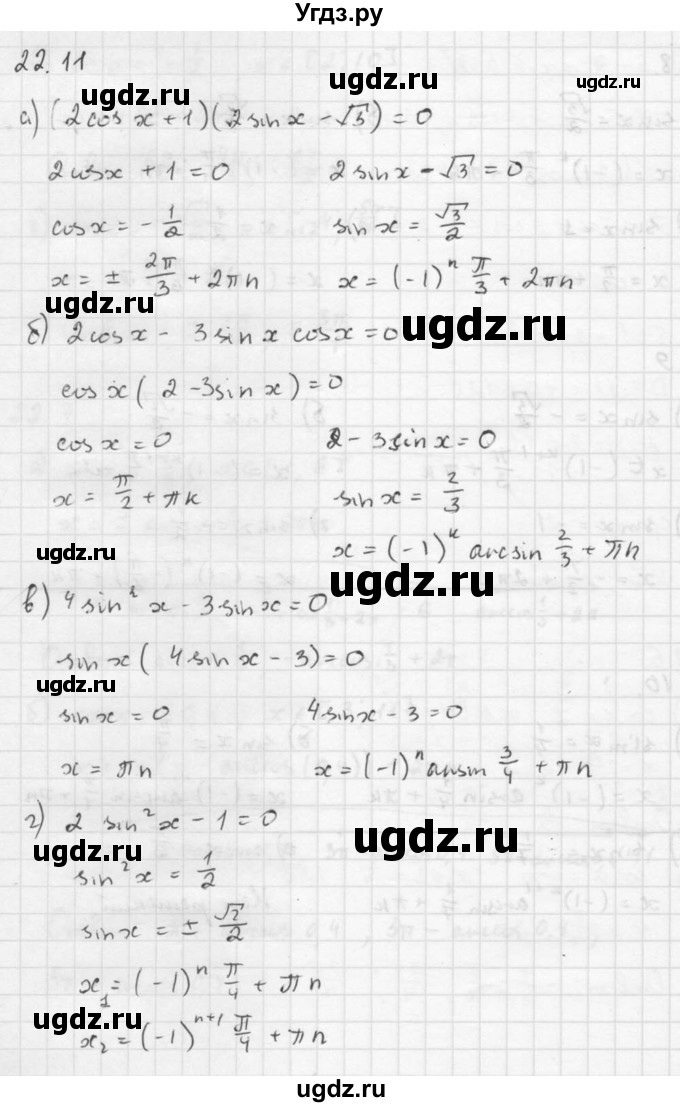 Угдз.ру
22.11
ugdz.ru ugdz.ru ugdz.ru
а) (2cos x + 1)(2 sin x − √3) = 0
2cosx + 1 = 0 2 sin x − √3 = 0
cos x = − 1/2 sin x = √3/2
x = ± 2π/3 + 2πn x = (−1)^n π/3 + 2πn
ugdz.ru ugdz.ru
б) 2cos x − 3 sin x cos x = 0
cos x ( 2 − 3 sin x ) = 0
cos x = 0 2 − 3 sin x = 0
x = π/2 + πk sin x = 2/3
ugdz.ru x = (−1)^k arcsin 2/3 + πn
ugdz.ru
в) 4 sin² x − 3 sin x = 0
sin x ( 4 sin x − 3) = 0
ugdz.ru
sin x = 0 4 sin x − 3 = 0
x = πn x = (−1)^n arcsin 3/4 + πn
г) 2 sin² x − 1 = 0
ugdz.ru ugdz.ru
sin² x = 1/2
sin x = ± √2/2
x₁ = (−1)^n π/4 + πn
ugdz.ru ugdz.ru
x₂ = (−1)^n+1 π/4 + πn
ugdz.ru